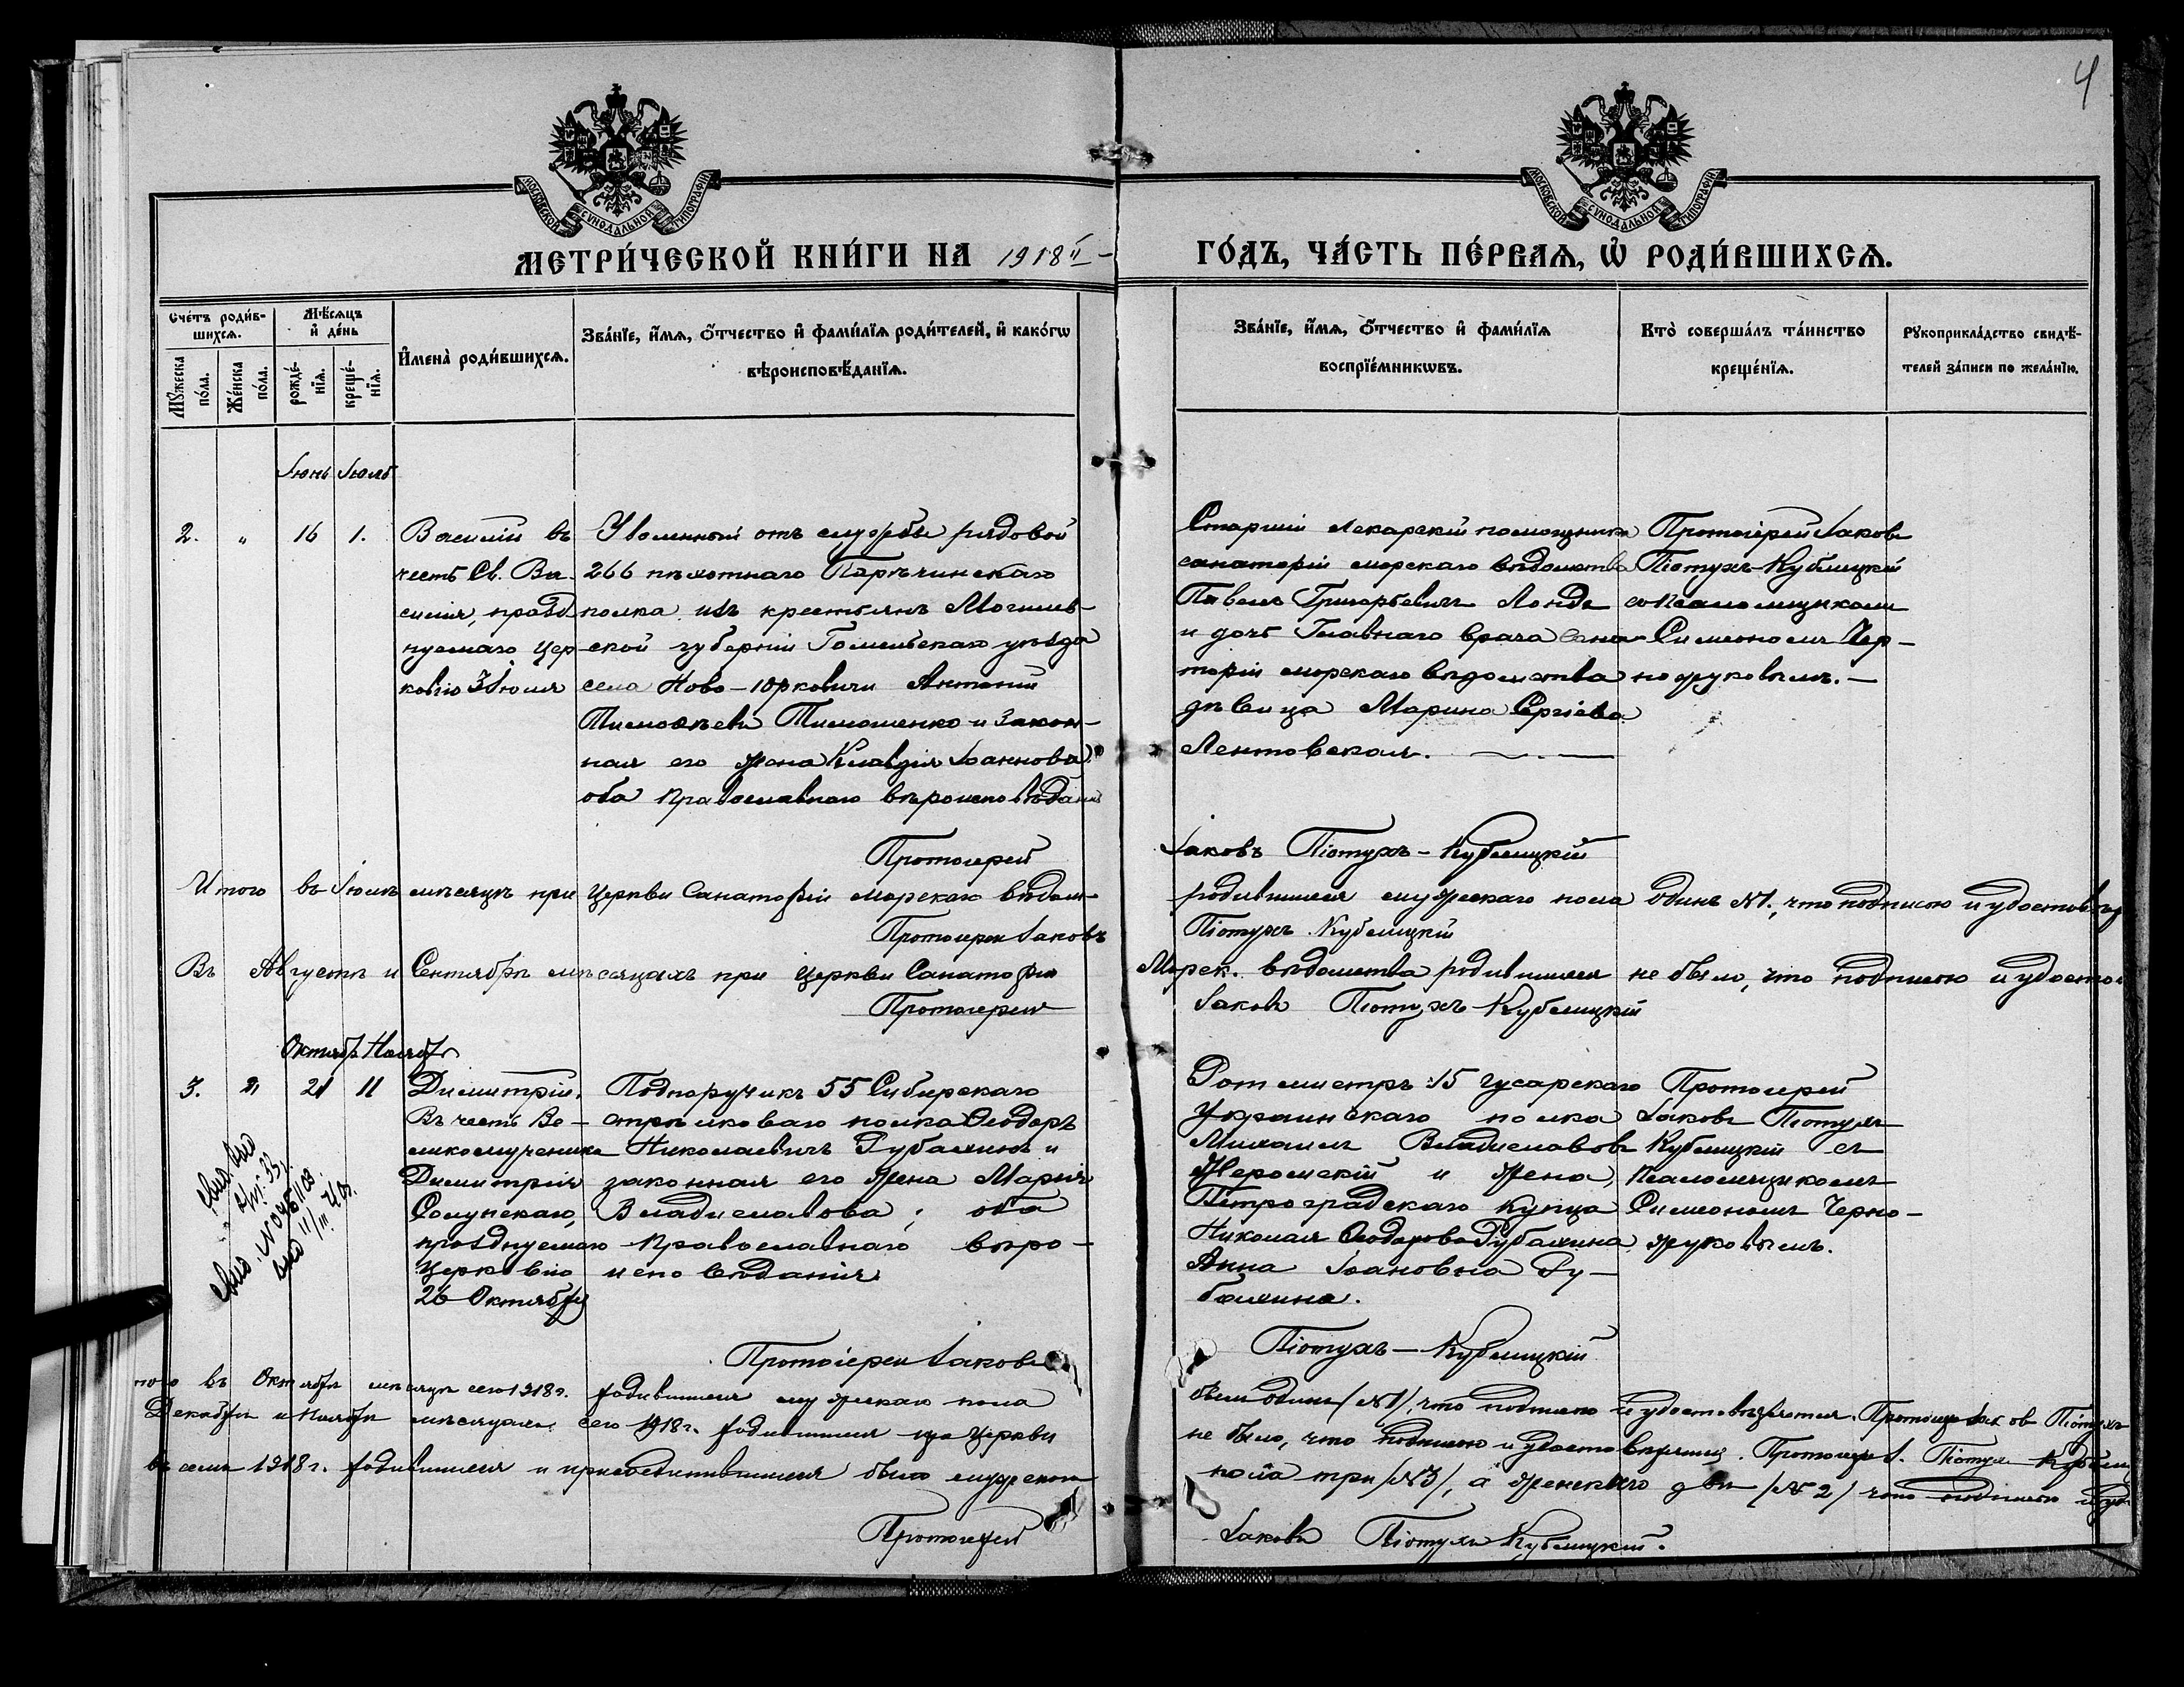 4
МОСКОВСКОЙ СѴНОДАЛЬНОЙ ТИПОГРАФІИ
МОСКОВСКОЙ СѴНОДАЛЬНОЙ ТИПОГРАФІИ
МЕТРИ́ЧЕСКОЙ КНИ́ГИ НА 1918 г-
ГО́ДЪ, ЧА́СТЬ ПЕ́РВАѦ, Ѡ РОДИ́ВШИХСѦ.
Сче́тъ роди́в-
шихсѧ.
Мꙋжеска по́ла.
Же́нска по́ла.
Мѣ́сѧцъ и҆ де́нь
рожде́-
нїѧ.
креще́-
нїѧ.
И҆мена̀ роди́вшихсѧ.
Зва́нїе, и҆́мѧ, ѻ҆́тчество и҆ фами́лїѧ роди́телей, и҆ како́гѡ
вѣроисповѣ́данїѧ.
Зва́нїе, и҆́мѧ, ѻ҆́тчество и҆ фами́лїѧ
воспрїе́мникѡвъ.
Кто̀ соверша́лъ та́инство
креще́нїѧ.
Рꙋкоприкла́дство свидѣ́-
телей за́писи по жела́нїю.
Іюнь Іюль
2. " 16 1.
Василій въ
честь Св. Ва-
силія, празд-
нуемаго Цер-
ковію 3 Іюля
Уволенный отъ службы рядовой
266 пѣхотнаго Порѣчинскаго
полка изъ крестьянъ Могилев-
ской губерніи Гомельскаго уѣзда
села Ново-Юрковичи Антоній
Тимоѳеевъ Тимошенко и закон-
ная его жена Клавдія Іоаннова
оба Православнаго вѣроисповѣданія
Старшій лекарскій помощникъ
санаторіи морскаго вѣдомства
Павелъ Григорьевичъ Лондъ
и дочь Главнаго врача сана-
торіи морскаго вѣдомства
дѣвица Марина Сергіева
Лентовская.
Протоіерей Іаковъ
Піотухъ-Кублицкій
со Псаломщикомъ
Симеономъ Чер-
ножуковымъ.
Протоіерей
Іаковъ Піотухъ-Кублицкій
Итого въ Іюлѣ мѣсяцѣ при Церкви Санаторіи морскаго вѣдом-
родившихся мужескаго пола одинъ №1., что подписью и удостовѣр
Протоіерей Іаковъ
Піотухъ Кублицкій
Въ Августѣ и Сентябрѣ мѣсяцахъ при Церкви Санаторіи
Морск. вѣдомства родившихся не было, что подписью и удосто
Протоіерей
Іаковъ Піотухъ-Кублицкій
Октябрь Ноябрь
3. " 21 11
Димитрій.
Въ честь Ве-
ликомученика
Димитрія
Солунскаго,
празднуемаго
Церковію
26 Октября
Подпоручикъ 55 Сибирскаго
стрѣлковаго полка Ѳеодоръ
Николаевичъ Рубахинъ и
законная его жена Марія
Владиславова; оба
Православнаго вѣро-
исповѣданія
Ротмистръ 15 гусарскаго
Украинскаго полка
Михаилъ Владиславовъ
Жеромскій и жена,
Петроградскаго купца
Николая Ѳеодорова Рубахина,
Анна Іоановна Ру-
бахина.
Протоіерей
Іаковъ Піотухъ
Кублицкій съ
Псаломщикомъ
Симеономъ Черно-
жуковымъ.
Протоіерей Іаковъ
Піотухъ-Кублицкій
того въ Октябрѣ мѣсяцѣ сего 1918 г. родившихся мужескаго пола
былъ одинъ /№1/, что подписью и удостовѣряется. Протоіерей Іаковъ Піотухъ
Декабрѣ и Ноябрѣ мѣсяцахъ сего 1918 г. родившихся при Церкви
не было, что подписью и удостовѣряется. Протоіерей І. Піотухъ Кублиц
въ семъ 1918 г. родившихся и присоединившихся было мужескаго
пола три /№3/, а женскаго двѣ /№2/ что подписью и удо
Протоіерей
Іаковъ Піотухъ Кублицкій.